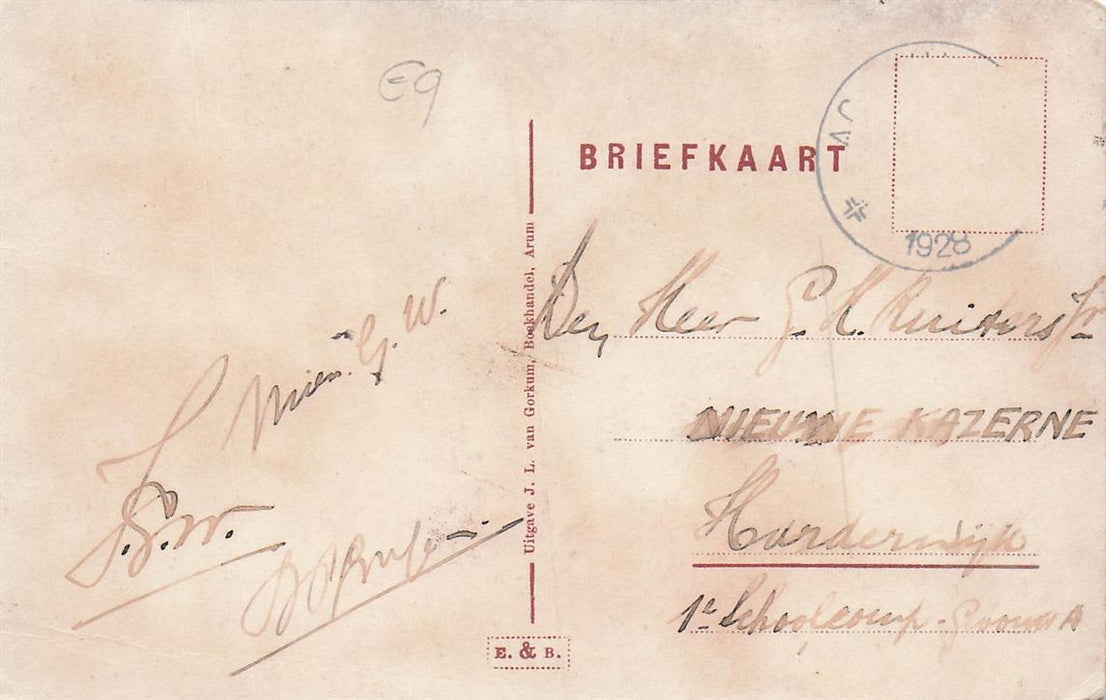 E9
BRIEFKAART
1928
Den Heer G. H. Ruiters Jr
NIEUWE KAZERNE
Harderwijk
1e Schoolcomp. Groep A
Mien. G. W.
S. W.
Uitgave J. L. van Gorkum, Boekhandel, Arum
E. & B.